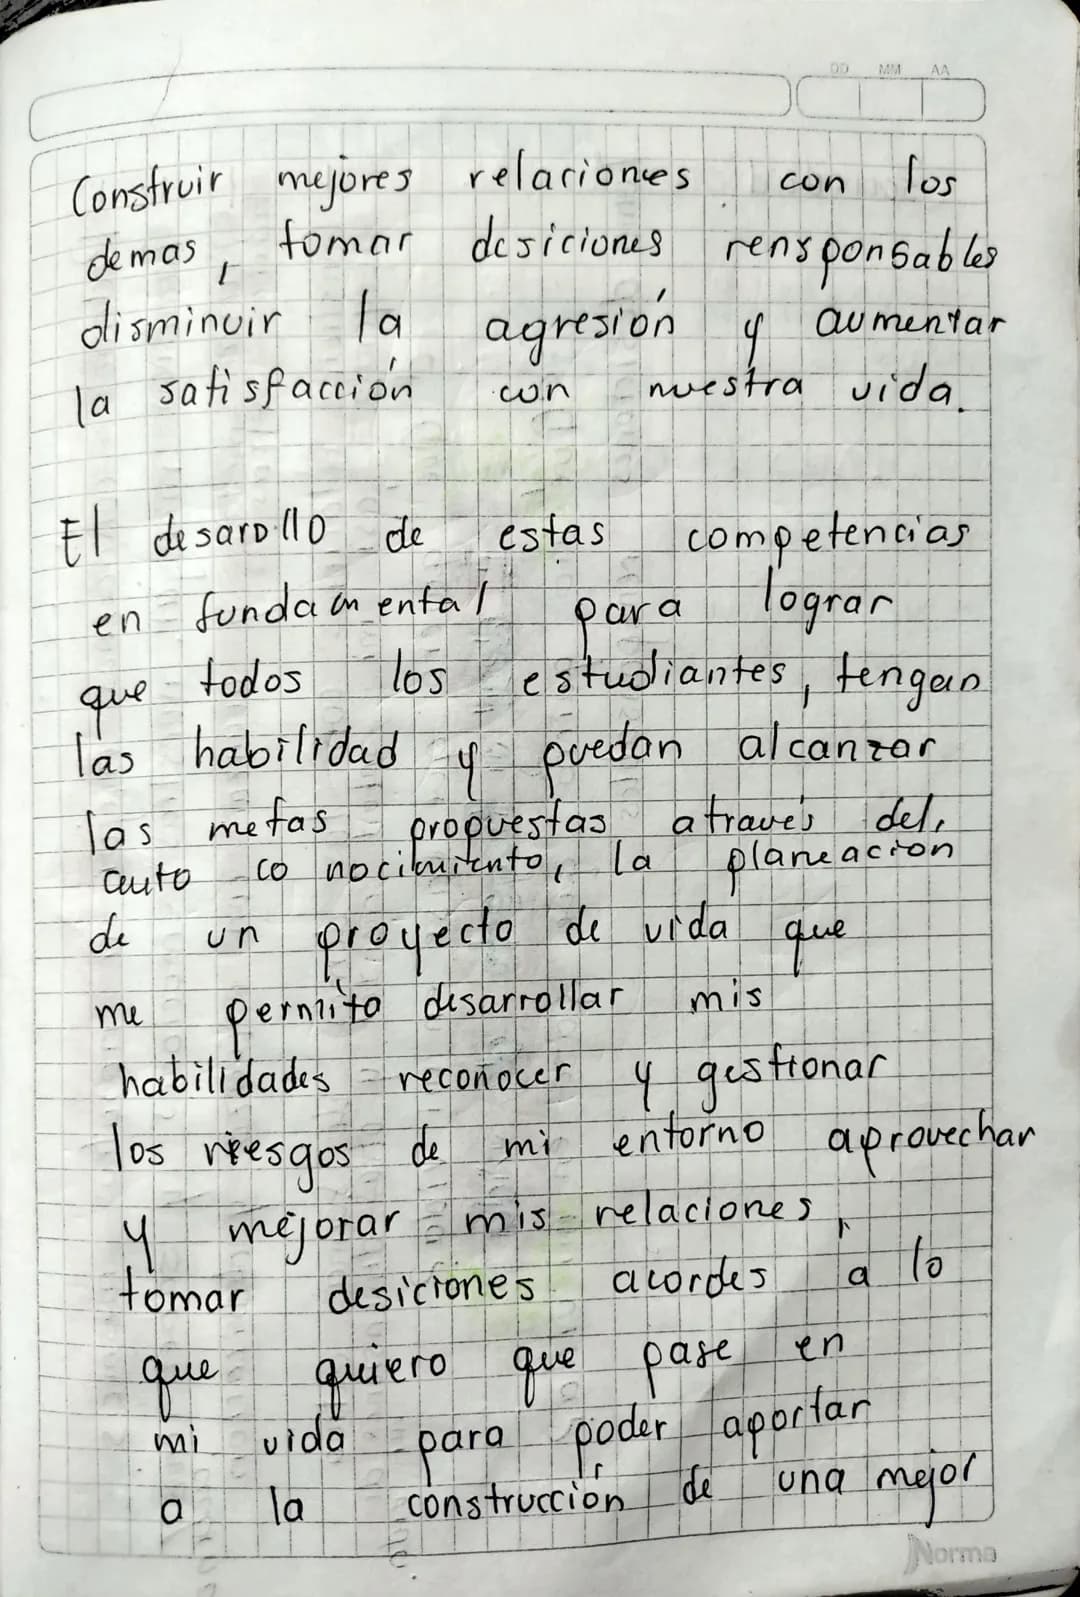 DD MM AA
Construir mejores relaciones con los
demas, tomar desiciones rensponsables
disminuir la agresión y aumentar
la satisfacción con nuestra vida.
El desarollo de estas competencias
en fundamental para lograr
que todos los estudiantes, tengan
las habilidad y puedan alcanzar
las metas propuestas através del,
auto conocimiento, la planeación
de un proyecto de vida que
me permita desarrollar mis
habilidades reconocer y gestionar
los riesgos de mi entorno aprovechar
y mejorar mis relaciones,
tomar desiciones acordes a lo
que quiero que pase en
mi vida para poder aportar
a la construcción de una mejor
Norma